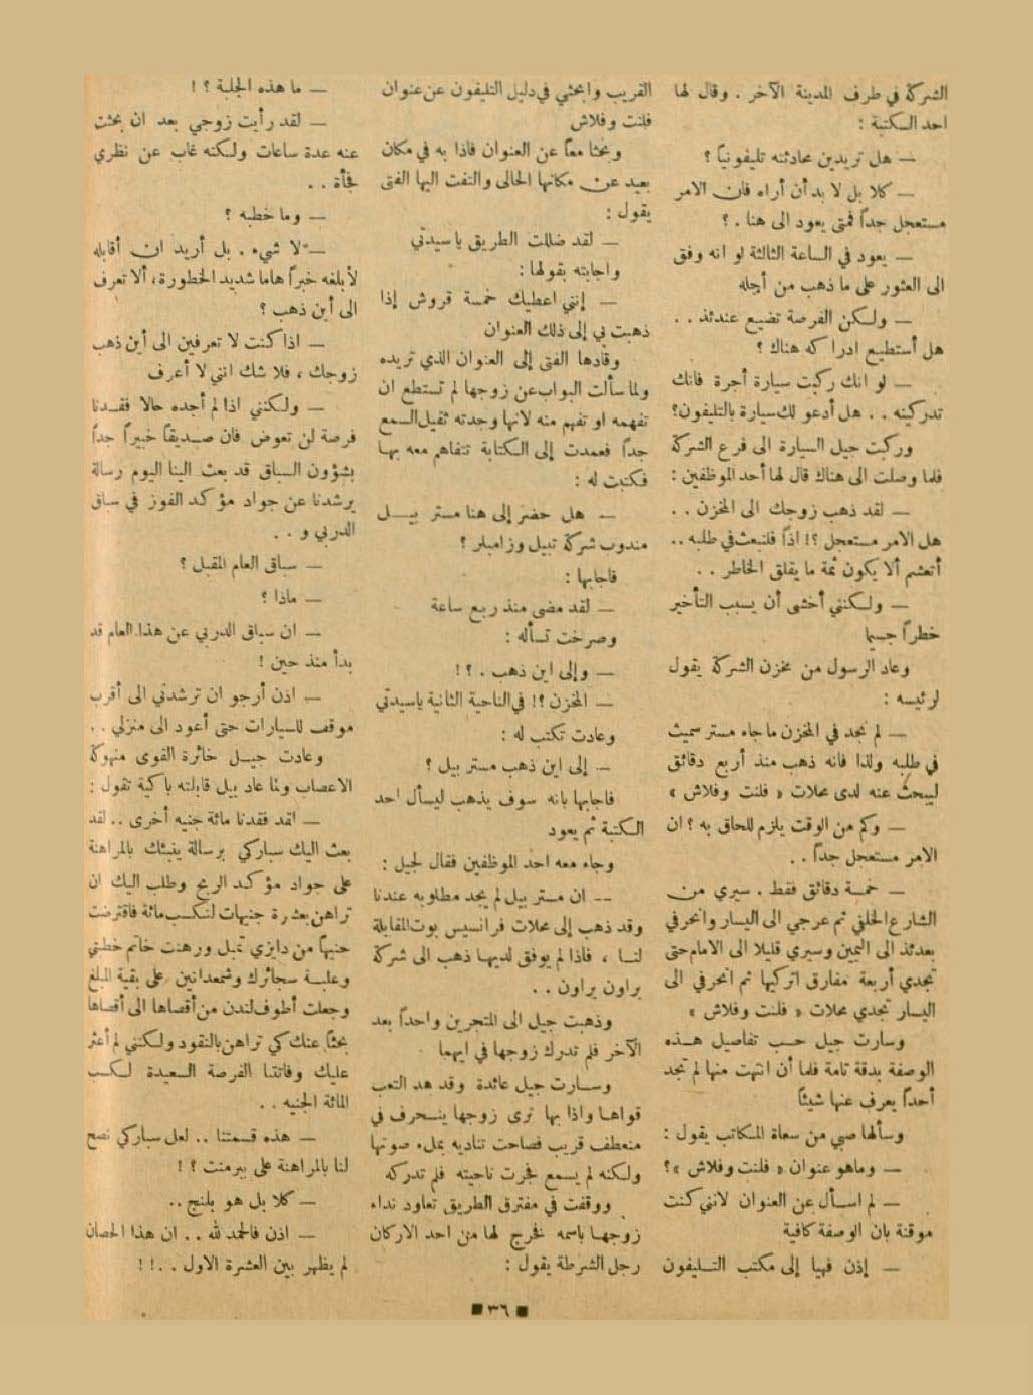 الشركة في طرف المدينة الآخر . وقال لها
احد الكتبة :
— هل تريدين محادثته تليفونياً ؟
— كلا بل لا بد أن أراه فان الامر
مستعجل جداً فمتى يعود الى هنا . ؟
— يعود في الساعة الثالثة لو انه وفق
الى العثور على ما ذهب من أجله
— ولكن الفرصة تضيع عندئذ . .
هل أستطيع ادراكه هناك ؟
— لو انك ركبت سيارة أجرة فانك
تدركينه . . هل أدعو لك سيارة بالتليفون؟
وركبت جيل السيارة الى فرع الشركة
فلما وصلت الى هناك قال لها أحد الموظفين :
— لقد ذهب زوجك الى المخزن . .
هل الامر مستعجل ؟! اذاً فلنبعث في طلبه ..
أتعشم ألا يكون ثمة ما يقلق الخاطر . .
— ولكنني أخشى أن يسبب التأخير
خطراً جسيما
وعاد الرسول من مخزن الشركة يقول
لرئيسه :
— لم نجد في المخزن ما جاء مستر سميث
في طلبه ولذا فانه ذهب منذ أربع دقائق
ليبحث عنه لدى محلات « فلنت وفلاش »
— وكم من الوقت يلزم للحاق به ؟ ان
الامر مستعجل جداً . .
— خمسة دقائق فقط . سيري من
الشارع الخلفي ثم عرجي الى اليسار وانحرفي
بعدئذ الى اليمين وسيري قليلا الى الامام حتى
تجدي أربعة مفارق اتركيها ثم انحرفي الى
اليسار تجدي محلات « فلنت وفلاش »
وسارت جيل حسب تفاصيل هذه
الوصفة بدقة تامة فلما أن انتهت منها لم تجد
أحداً يعرف عنها شيئاً
وسألها صبي من سعاة المكاتب يقول :
— وماهو عنوان « فلنت وفلاش »؟
— لم اسأل عن العنوان لانني كنت
موقنة بان الوصفة كافية
— إذن فهيا إلى مكتب التليفون
القريب وابحثي في دليل التليفون عن عنوان
فلنت وفلاش
وبحثا معاً عن العنوان فاذا به في مكان
بعيد عن مكانها الحالى والتفت اليها الفتى
يقول :
— لقد ضللت الطريق ياسيدتي
واجابته بقولها :
— إنني اعطيك خمسة قروش إذا
ذهبت بي إلى ذلك العنوان
وقادها الفتى إلى العنوان الذي تريده
ولما سألت البواب عن زوجها لم تستطع ان
تفهمه او تفهم منه لانها وجدته ثقيل السمع
جداً فعمدت إلى الكتابة تتفاهم معه بها
فكتبت له :
— هل حضر إلى هنا مستر بيل
مندوب شركة تبيل وزامبلر ؟
فاجابها :
— لقد مضى منذ ربع ساعة
وصرخت تسأله :
— وإلى اين ذهب . ؟!
— المخزن ؟! في الناحية الثانية ياسيدتي
وعادت تكتب له :
— إلى اين ذهب مستر بيل ؟
فاجابها بانه سوف يذهب ليسأل احد
الكتبة ثم يعود
وجاء معه احد الموظفين فقال لجيل :
— ان مستر بيل لم يجد مطلوبه عندنا
وقد ذهب إلى محلات فرانسيس بوت المقابلة
لنا ، فاذا لم يوفق لديها ذهب الى شركة
براون براون . .
وذهبت جيل الى المتجرين واحداً بعد
الآخر فلم تدرك زوجها في ايهما
وسارت جيل عائدة وقد هد التعب
قواها واذا بها ترى زوجها ينحرف في
منعطف قريب فصاحت تناديه بملء صوتها
ولكنه لم يسمع فجرت ناحيته فلم تدركه
ووقفت في مفترق الطريق تعاود نداء
زوجها باسمه فخرج لها من احد الاركان
رجل الشرطة يقول :
— ما هذه الجلبة ؟ !
— لقد رأيت زوجي بعد ان بحثت
عنه عدة ساعات ولكنه غاب عن نظري
فجأة . .
— وما خطبه ؟
— لا شيء . بل أريد ان أقابله
لأبلغه خبراً هاما شديد الخطورة، ألا تعرف
الى أين ذهب ؟
— اذا كنت لا تعرفين الى أين ذهب
زوجك ، فلا شك انني لا أعرف
— ولكنني اذا لم أجده حالا فقدنا
فرصة لن تعوض فان صديقاً خبيراً جداً
بشؤون السباق قد بعث الينا اليوم رسالة
يرشدنا عن جواد مؤكد الفوز في سباق
الدربي و . .
— سباق العام المقبل ؟
— ماذا ؟
— ان سباق الدربي عن هذا العام قد
بدأ منذ حين !
— اذن أرجو ان ترشدني الى أقرب
موقف للسيارات حتى أعود الى منزلي . .
وعادت جيل خائرة القوى منهوكة
الاعصاب ولما عاد بيل قابلته باكية تقول :
— لقد فقدنا مائة جنيه أخرى . . لقد
بعث اليك سباركي برسالة ينبئك بالمراهنة
على جواد مؤكد الربح وطلب اليك ان
تراهن بعشرة جنيهات لنكسب مائة فاقترضت
جنيهاً من دايزي تمبل ورهنت خاتم خطبتي
وعلبة سجائرك وشمعدانين على بقية المبلغ
وجعلت أطوف لندن من أقصاها الى أقصاها
بحثاً عنك كي تراهن بالنقود ولكنني لم أعثر
عليك وفاتتنا الفرصة السعيدة لكسب
المائة الجنيه . .
— هذه قسمتنا . . لعل سباركي نصح
لنا بالمراهنة على بيرمنت ؟ !
— كلا بل هو بلنج ..
— اذن فالحمد لله . . ان هذا الحصان
لم يظهر بين العشرة الاول . . ! !
٣٦